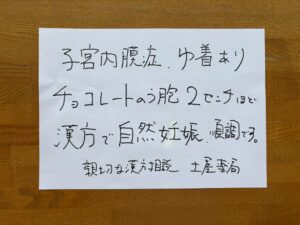 子宮内膜症、ゆ着あり
チョコレートのう胞2センチほど
漢方で自然妊娠、順調です。
親切な漢方相談 土屋薬局